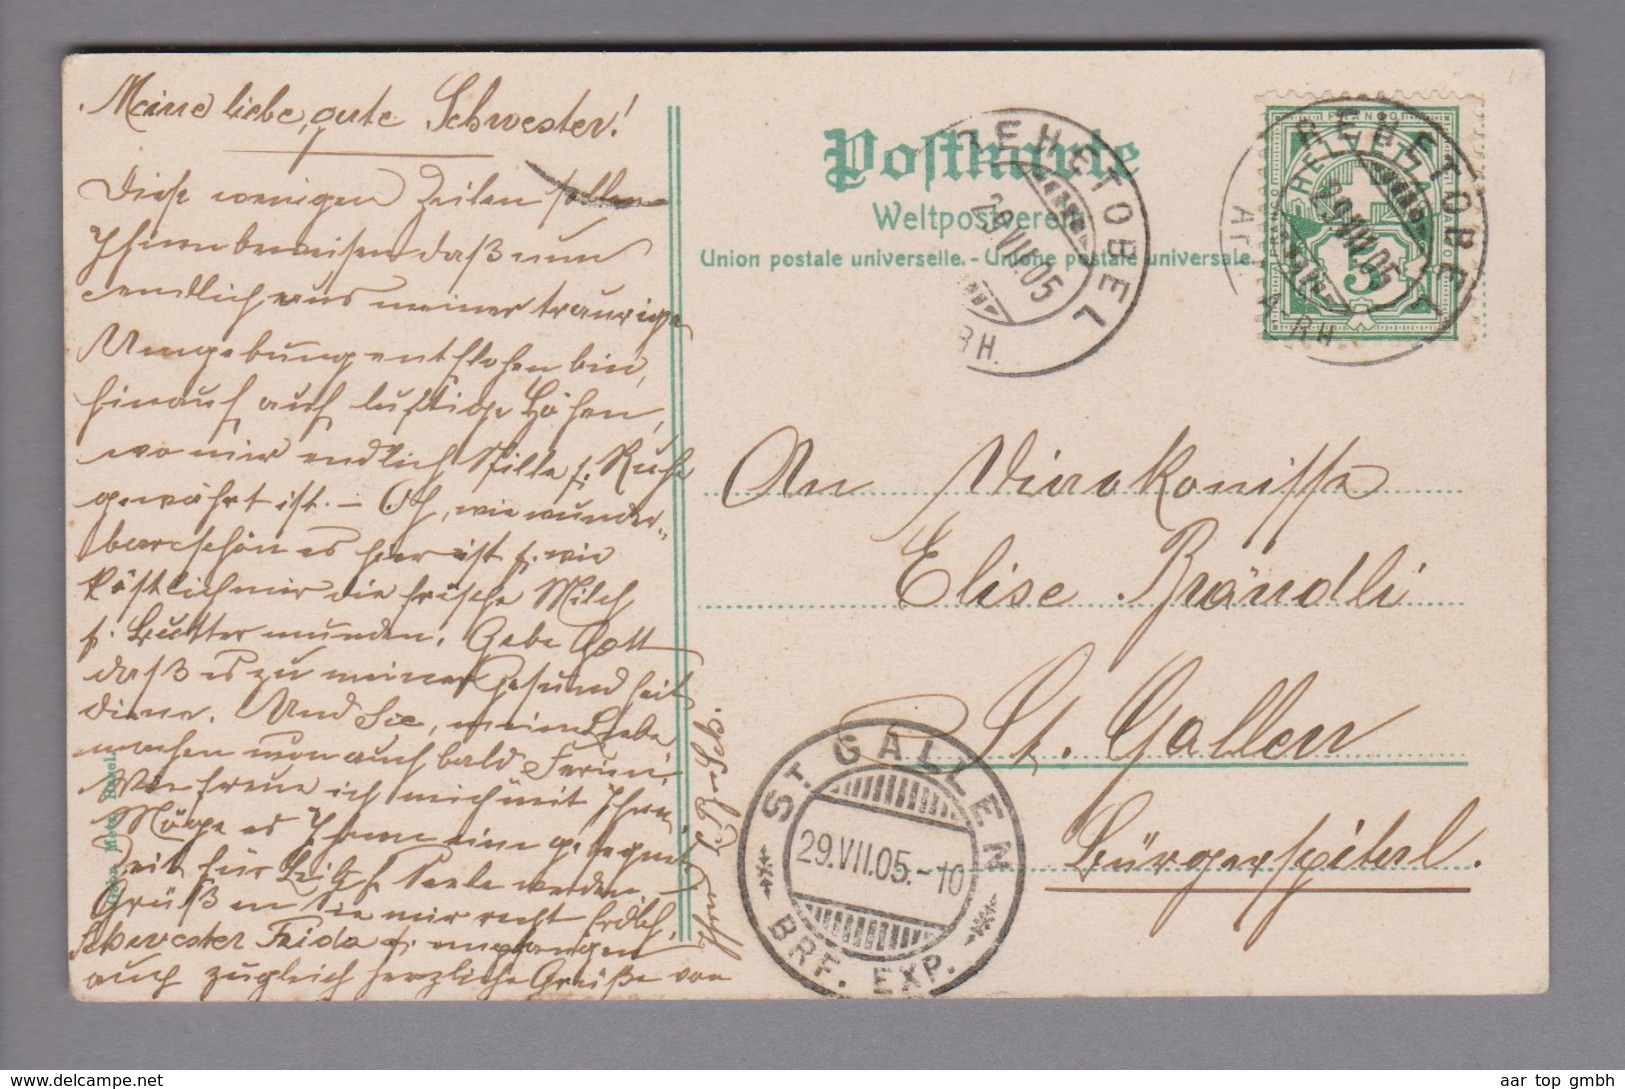 Meine liebe, gute Schwester!
Diese wenigen Zeilen sollen
Ihnen beweisen daß nun
endlich aus meiner traurige
Umgebung entflohen bin,
hinauf auf luftige Höhen,
wo mir endlich Stille u. Ruhe
gewährt ist. – Oh, wie wunder-
barschön es hier ist u. wie
köstlich mir die frische Milch
u. Butter munden. Gebe Gott
daß es zu meiner Gesundheit
diene. Und Sie, meine Liebe
machen nun auch bald Ferien.
Wie freue ich mich mit Ihnen.
Möge es Ihnen eine gesegnete
Zeit für Leib u. Seele werden.
Grüßen Sie mir recht herzlich,
Schwester Frida u. empfangen
auch zugleich herzliche Grüße von
Ihrer
Postkarte
Weltpostverein
Union postale universelle. - Unione postale universale.
REHETOBEL
29.VII.05
RH.
REHETOBEL
29.VII.05
RH.
FRANCO
HELVETIA
5
An Diakonisse
Elise Brändli
St. Gallen
Bürgerspital.
ST. GALLEN
29.VII.05.-10
BRF. EXP.
aar top gmbh
www.delcampe.net